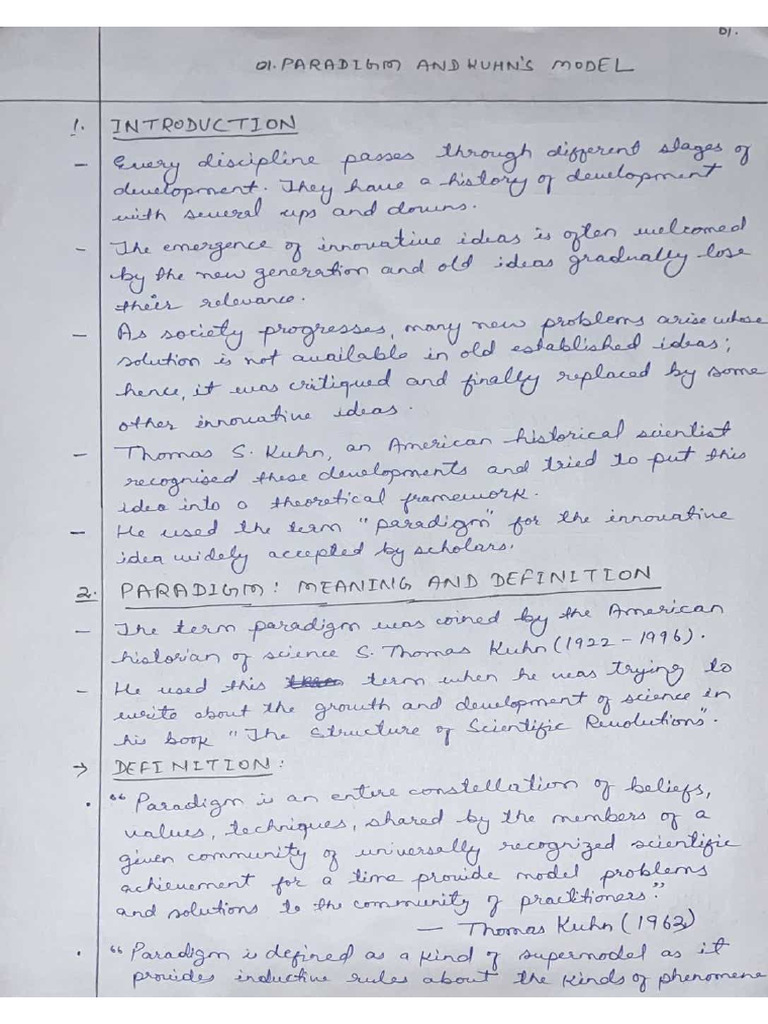 01.
01. PARADIGM AND KUHN'S MODEL
1. INTRODUCTION
- Every discipline passes through different stages of
development. They have a history of development
with several ups and downs.
- The emergence of innovative ideas is often welcomed
by the new generation and old ideas gradually lose
their relevance.
- As society progresses, many new problems arise whose
solution is not available in old established ideas;
hence, it was critiqued and finally replaced by some
other innovative ideas.
- Thomas S. Kuhn, an American historical scientist
recognised these developments and tried to put this
idea into a theoretical framework.
- He used the term "paradigm" for the innovative
idea widely accepted by scholars.
2. PARADIGM: MEANING AND DEFINITION
- The term paradigm was coined by the American
historian of science S. Thomas Kuhn (1922-1996).
- He used this term when he was trying to
write about the growth and development of science in
his book "The Structure of Scientific Revolutions".
→ DEFINITION:
• "Paradigm is an entire constellation of beliefs,
values, techniques, shared by the members of a
given community of universally recognized scientific
achievement for a time provide model problems
and solutions to the community of practitioners."
— Thomas Kuhn (1962)
• "Paradigm is defined as a kind of supermodel as it
provides inductive rules about the kinds of phenomene